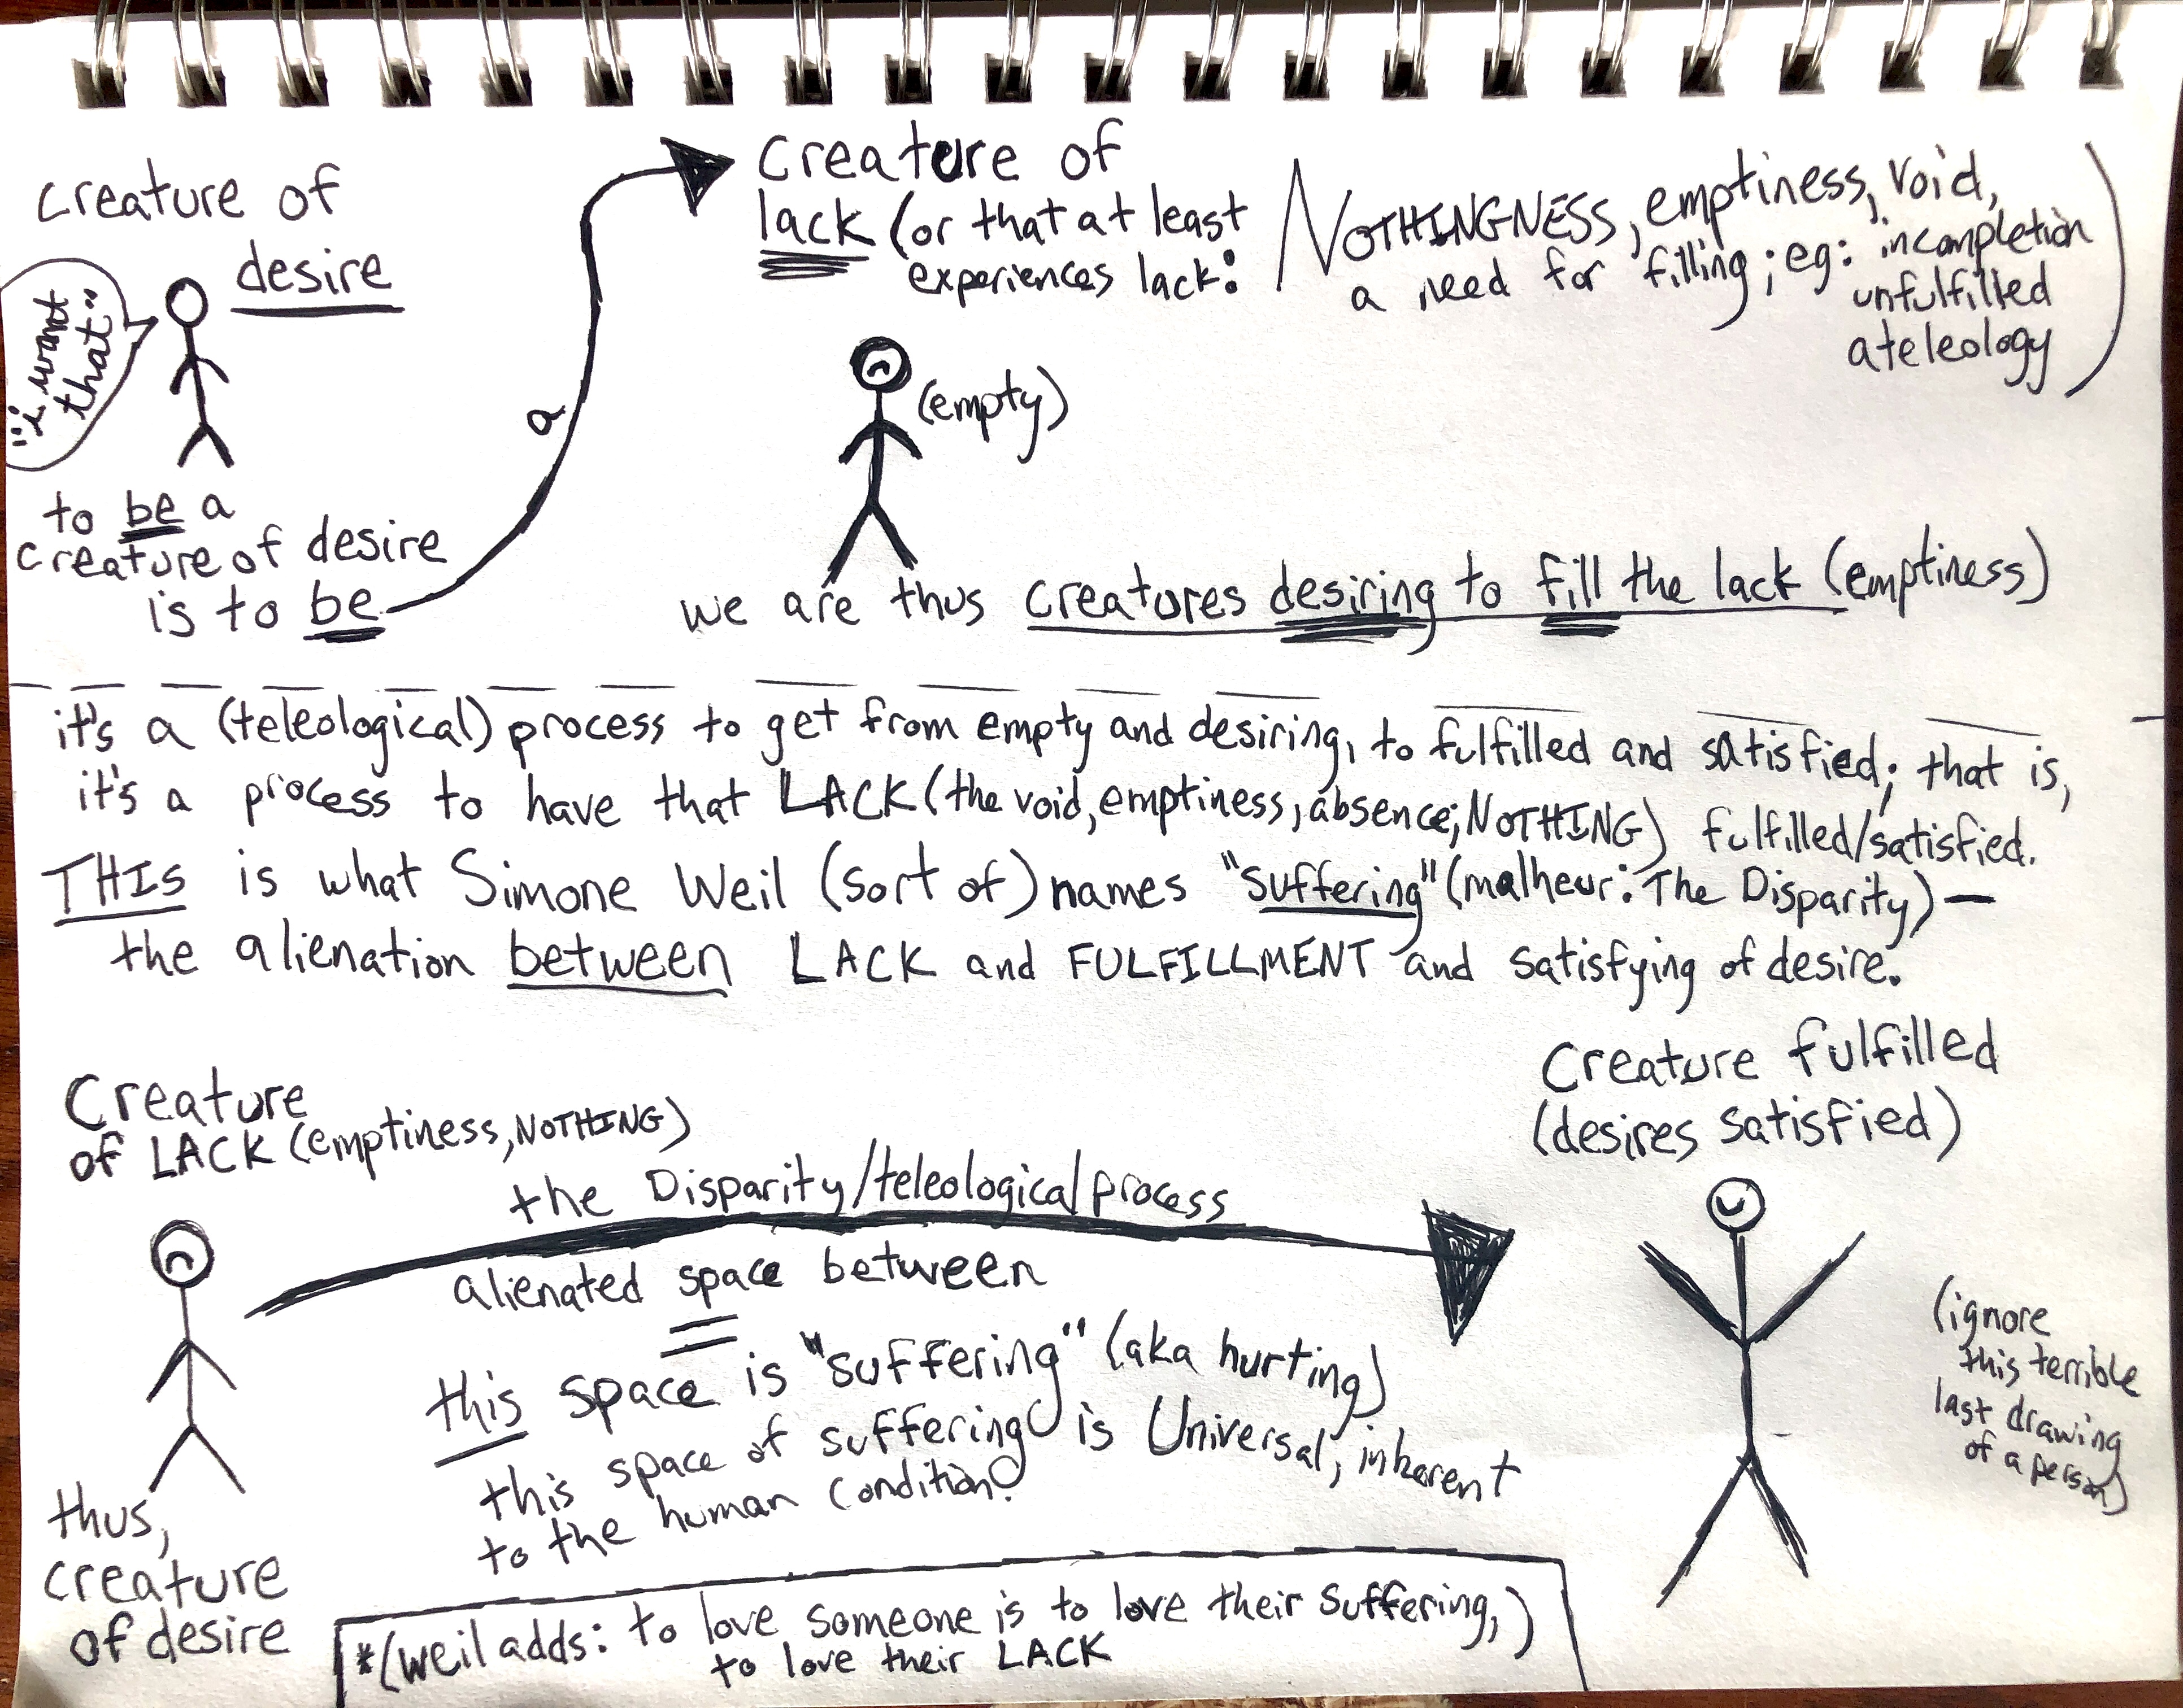 creature of
desire
"i want
that"
to be a
creature of desire
is to be
a
creature of
lack (or that at least
experiences lack:
NOTHINGNESS, emptiness, void,
a need for filling; eg: incompletion
unfulfilled
ateleology)
(empty)
we are thus creatures desiring to fill the lack (emptiness)
it's a (teleological) process to get from empty and desiring, to fulfilled and satisfied; that is,
it's a process to have that LACK (the void, emptiness, absence; NOTHING) fulfilled/satisfied.
THIS is what Simone Weil (sort of) names "suffering" (malheur: The Disparity) —
the alienation between LACK and FULFILLMENT and satisfying of desire.
Creature
of LACK (emptiness, NOTHING)
the Disparity/teleological process
alienated space between
this space is "suffering" (aka hurting)
this space of suffering is Universal, inherent
to the human condition.
thus,
creature
of desire
Creature fulfilled
(desires satisfied)
(ignore
this terrible
last drawing
of a person)
*(weil adds: to love someone is to love their suffering,)
to love their LACK